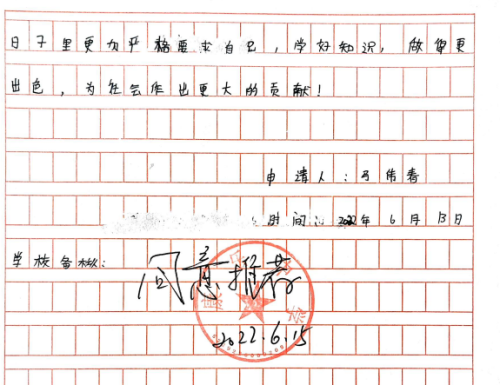 日子里更为严格要求自己，学好知识，做得更
出色，为社会作出更大的贡献！
申请人：伟春
时间：2022年6月13日
学校备案：
同意推荐
2022.6.15